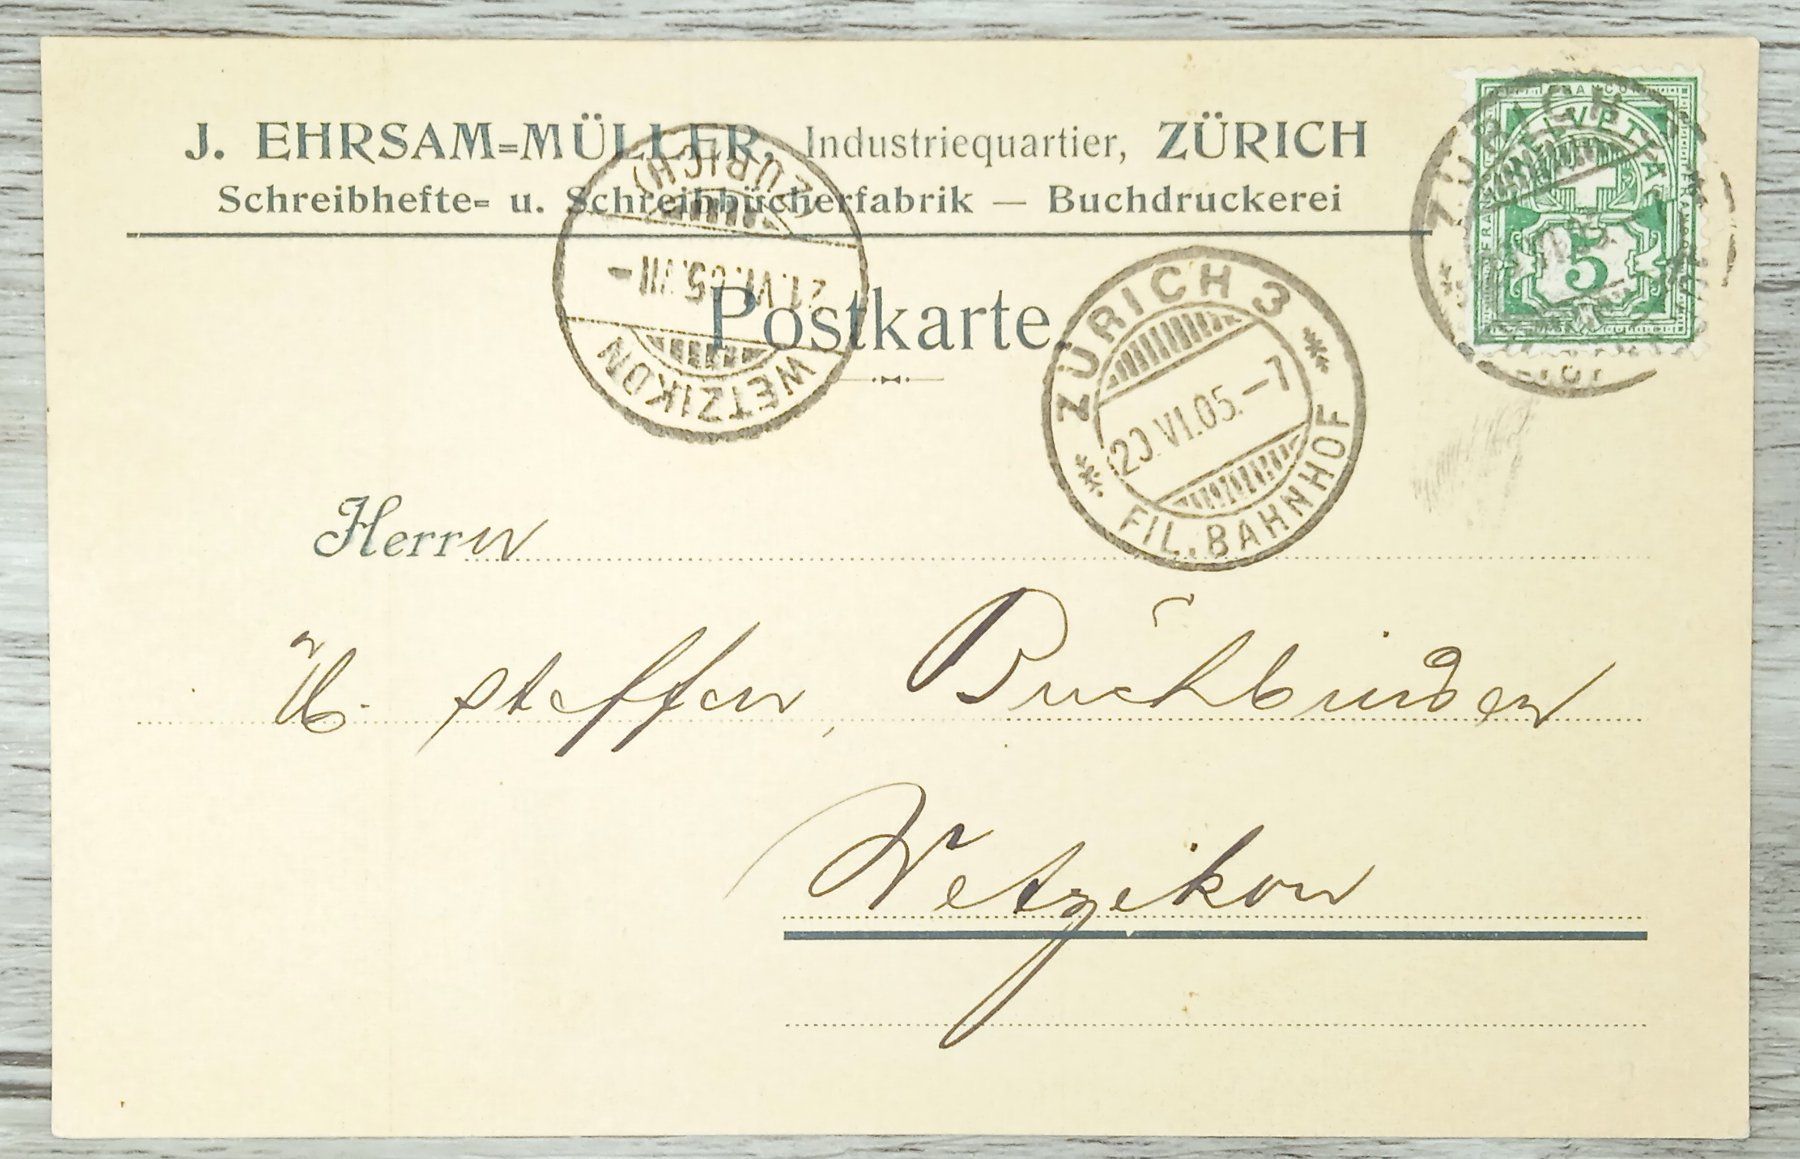 J. EHRSAM=MÜLLER, Industriequartier, ZÜRICH
Schreibhefte= u. Schreibbücherfabrik — Buchdruckerei
Postkarte.
WETZIKON
(ZÜRICH)
21.VI.05.VII–
ZÜRICH 3
20.VI.05.–7
FIL. BAHNHOF
ZÜRICH
FRANCO
HELVETIA
5
Herrn
Steffen, Buchbinder
Wetzikon